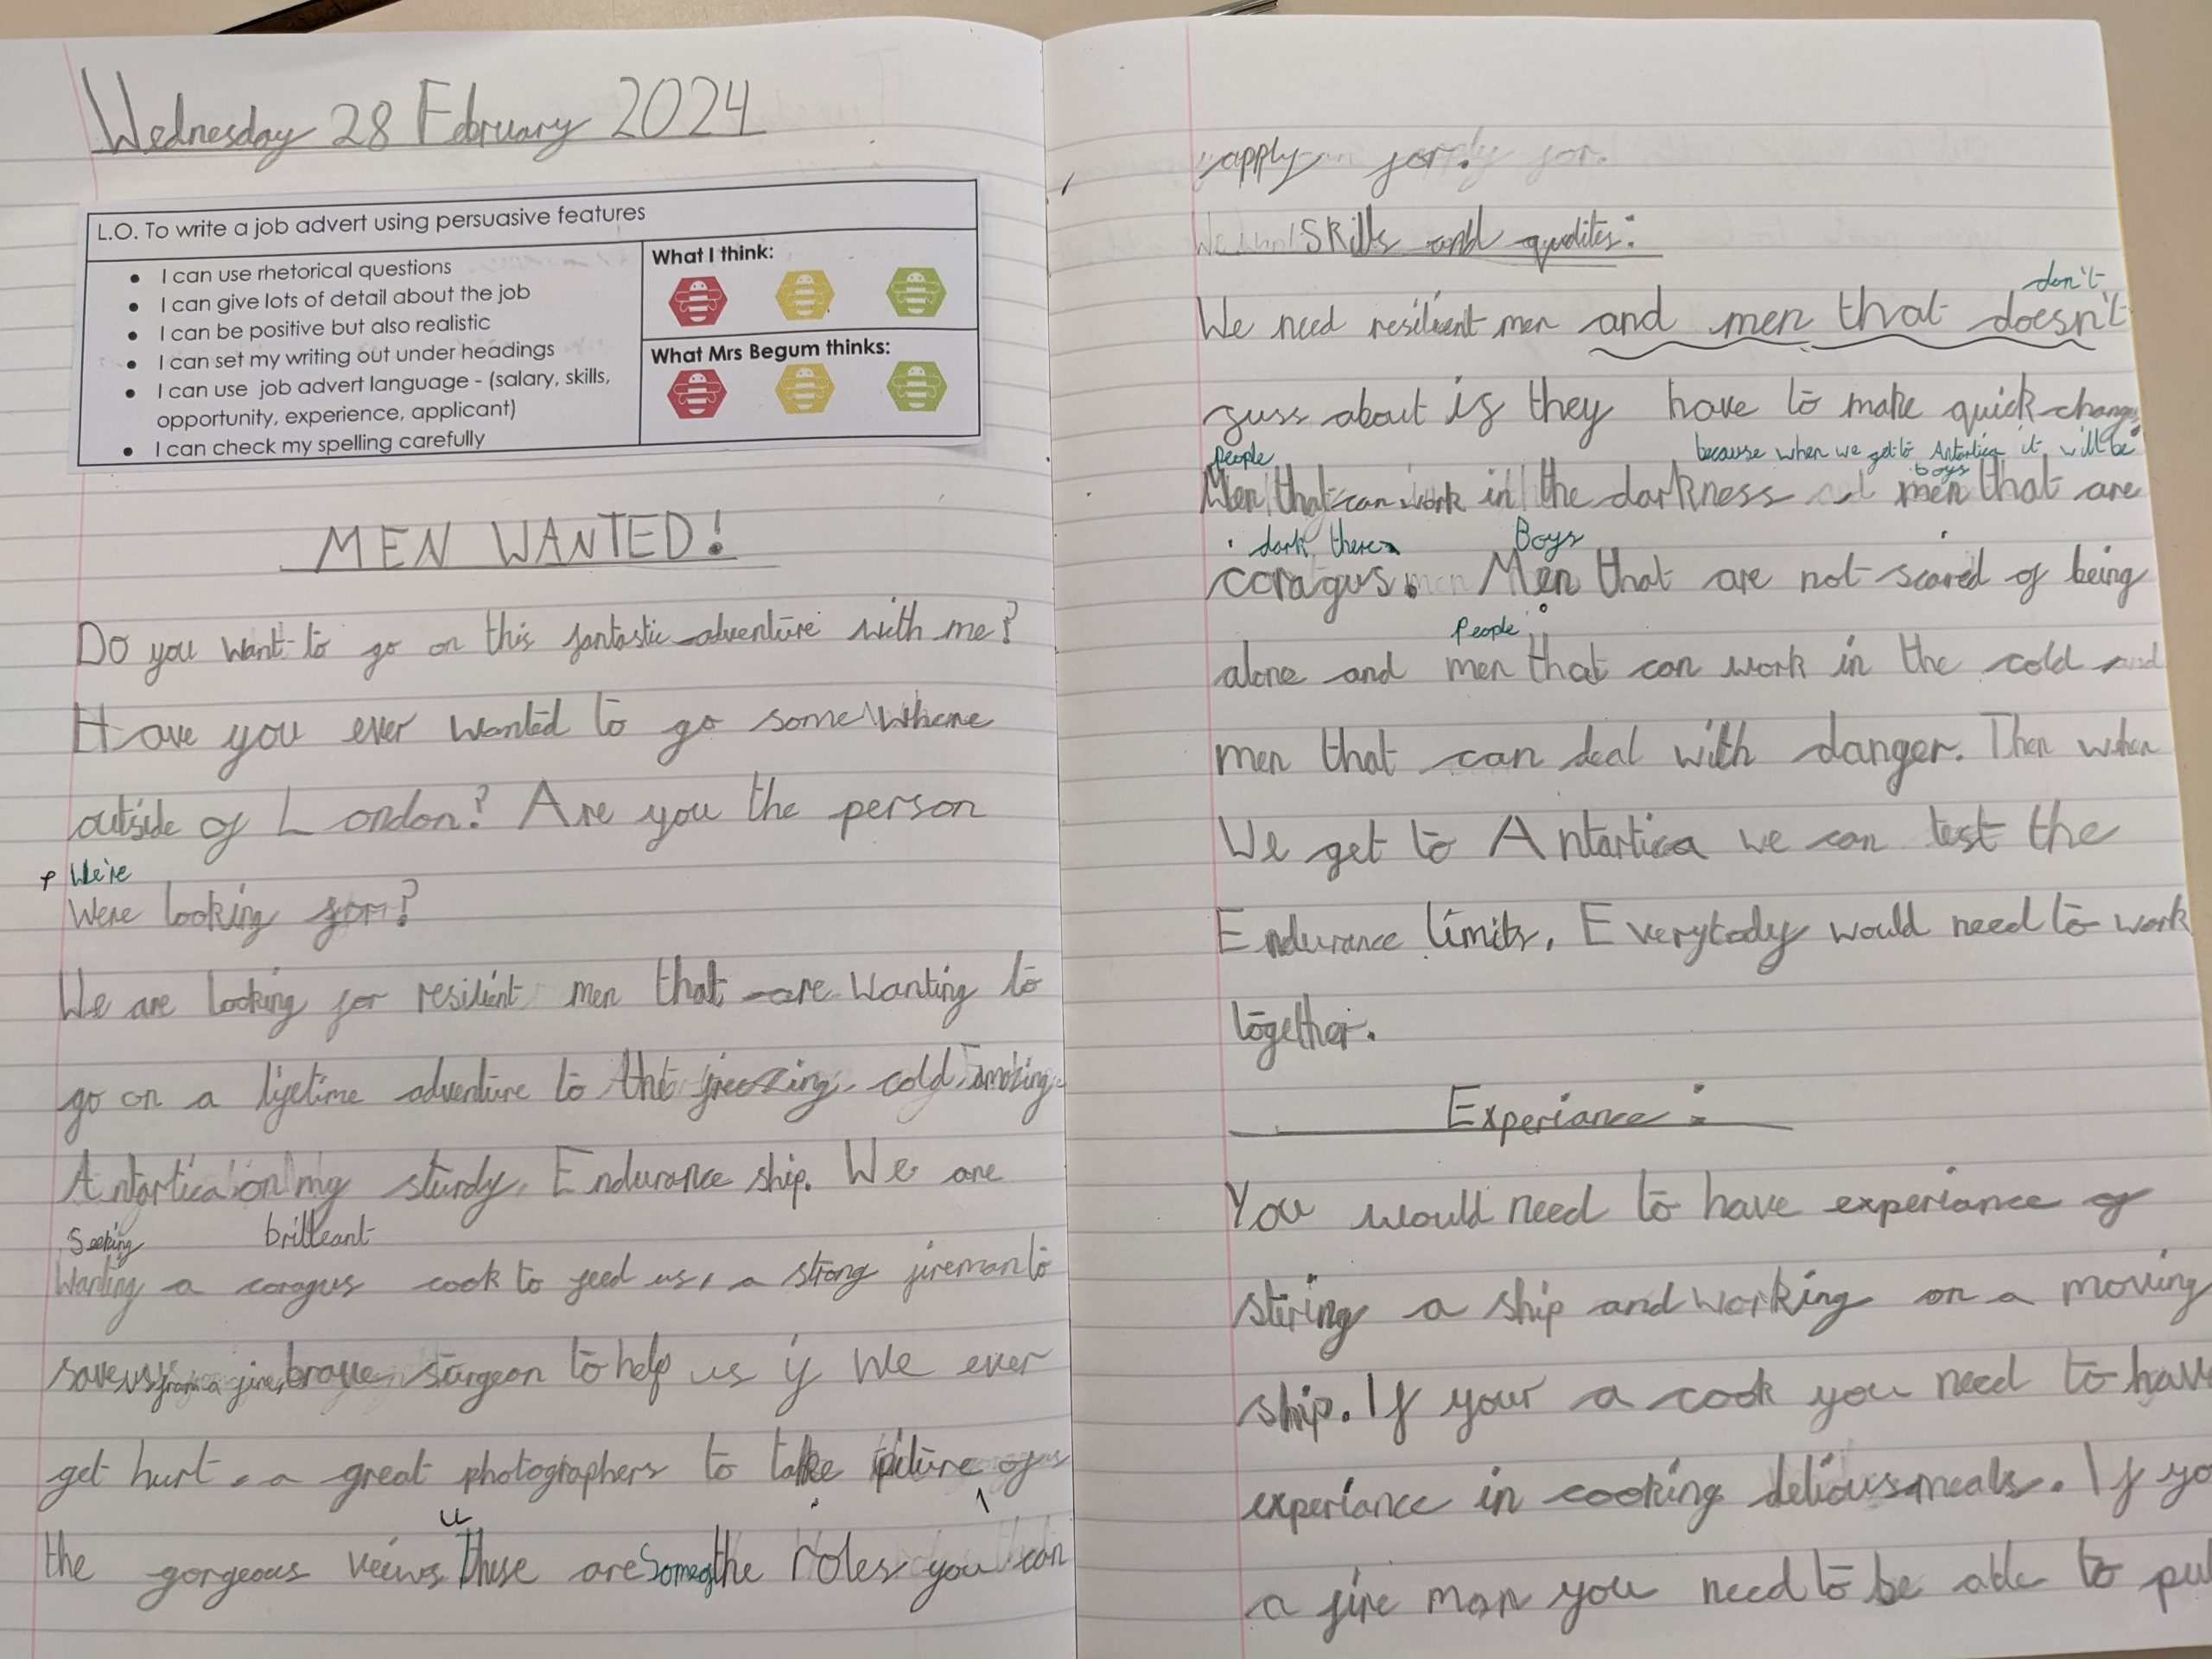 Wednesday 28 February 2024
L.O. To write a job advert using persuasive features
• I can use rhetorical questions
• I can give lots of detail about the job
• I can be positive but also realistic
• I can set my writing out under headings
• I can use job advert language - (salary, skills,
opportunity, experience, applicant)
• I can check my spelling carefully
What I think:
What Mrs Begum thinks:
MEN WANTED!
Do you want to go on this fantastic adventure with me?
Have you ever wanted to go some where
outside of London? Are you the person
We're
Were looking for?
We are looking for resilient men that are wanting to
go on a lifetime adventure to the freezing cold, amazing
Antartica on my sturdy, Endurance ship. We are
Seeking brilleant
Wanting a coragus cook to feed us, a strong fireman to
save us from a fire, brave surgeon to help us if we ever
get hurt, a great photographers to take picture of
the gorgeous veiws These are Some of the roles you can
apply for.
Skills and qualites:
don't
We need resilient men and men that doesn't
fuss about if they have to make quick change
people because when we get to Antartica it will be
boys
Men that can work in the darkness men that are
dark there Boys
coragus. Men that are not scared of being
People
alone and men that can work in the cold and
men that can deal with danger. Then when
We get to Antartica we can test the
Endurance limits, Everybody would need to work
together.
Experiance:
You would need to have experiance of
stiring a ship and working on a moving
ship. If your a cook you need to have
experiance in cooking delious meals. If yo
a fire man you need to be able to pu